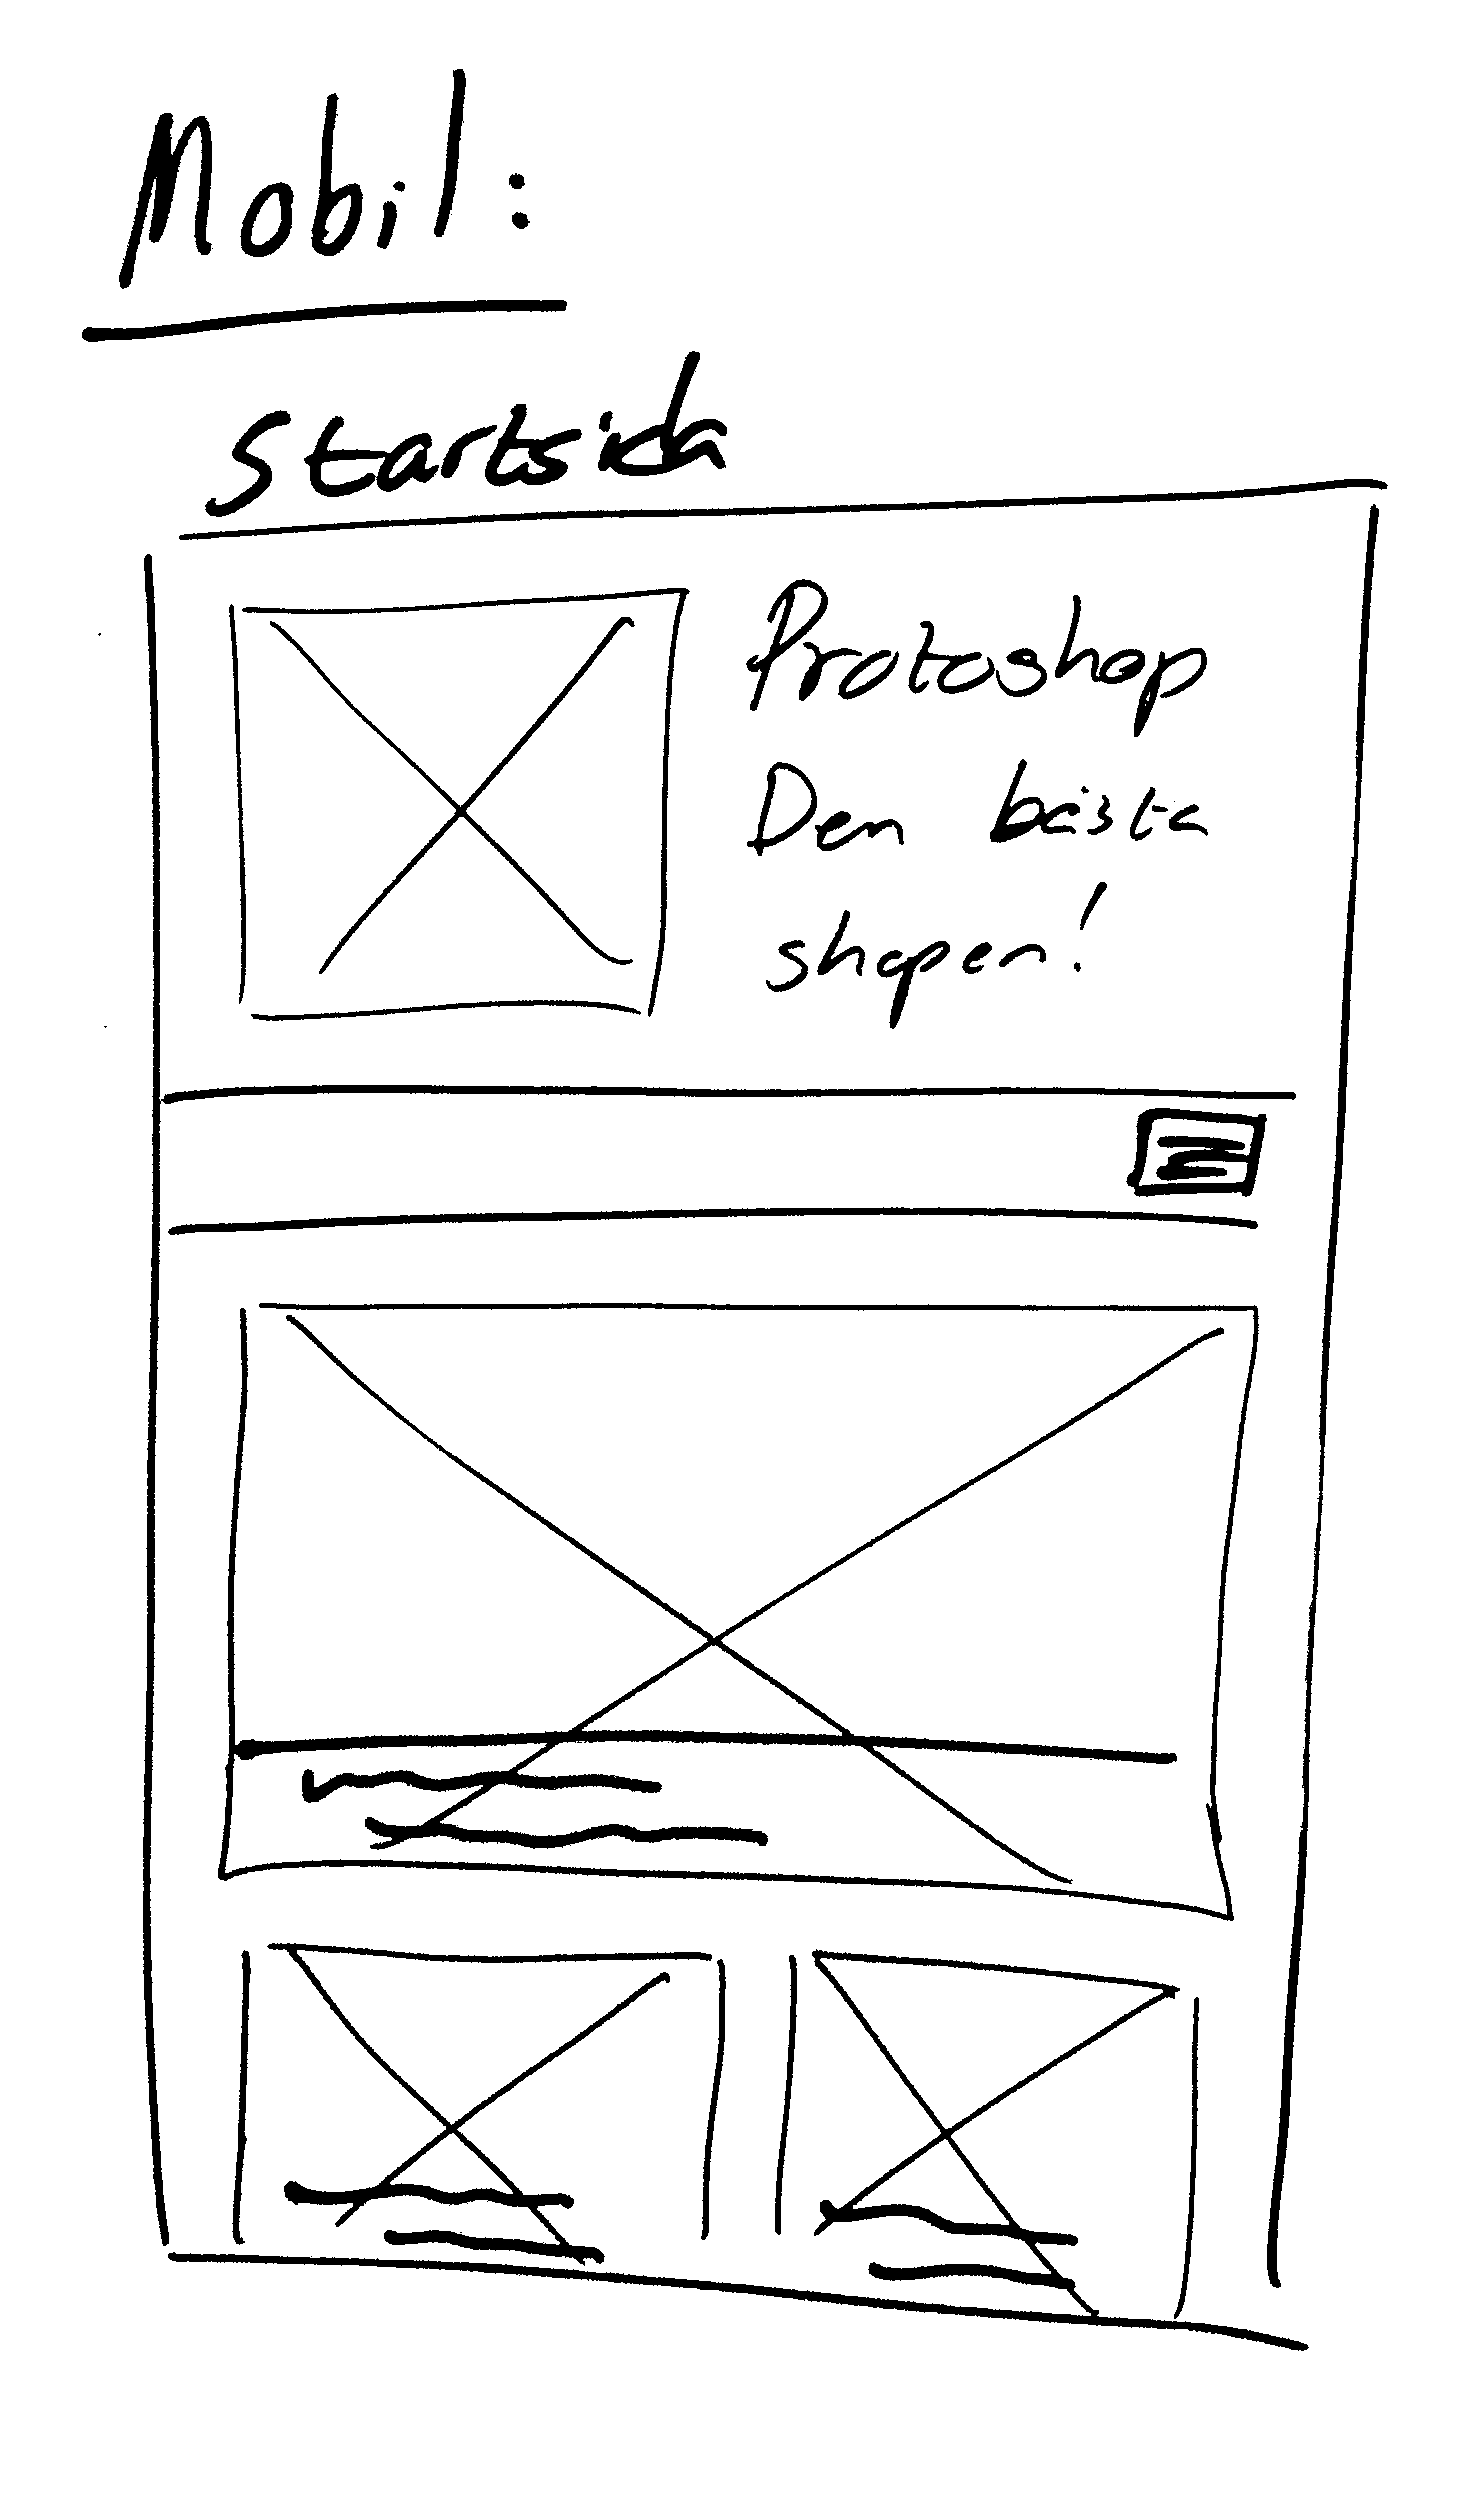 Mobil:
Startsida
Protoshop
Den bästa
shopen!